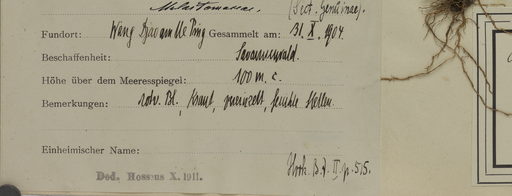 Melastomaceae.
Fundort: Wang Djao am Me Ping Gesammelt am: 31. X. 1904.
Beschaffenheit: Savannenwald.
Höhe über dem Meeresspiegel: 100 m. c.
Bemerkungen: rotv. Bl., Kraut, vereinzelt, feuchte Stellen
Einheimischer Name:
Ded. Hosseus X. 1911.